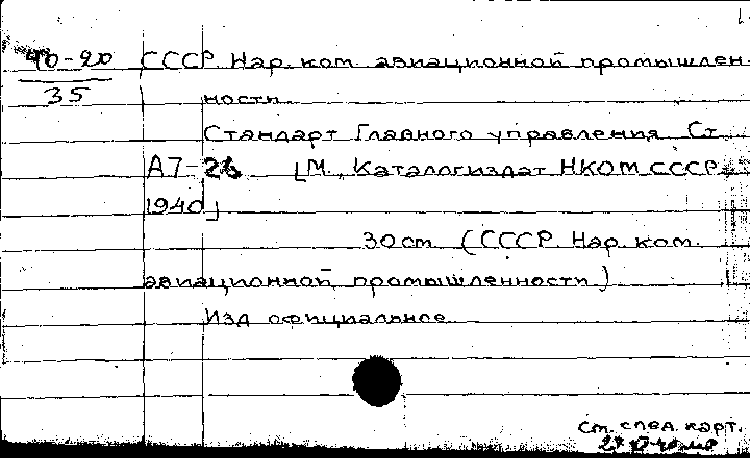 40-20 СССР. Нар. ком. авиационной промышлен-
35
ности.
Стандарт Главного управления. Ст.
А7-26. [М., Каталогиздат НКОМ СССР,
1940]
30 cm. (СССР. Нар. ком.
авиационной промышленности)
Изд. официальное.
См. след. карт.